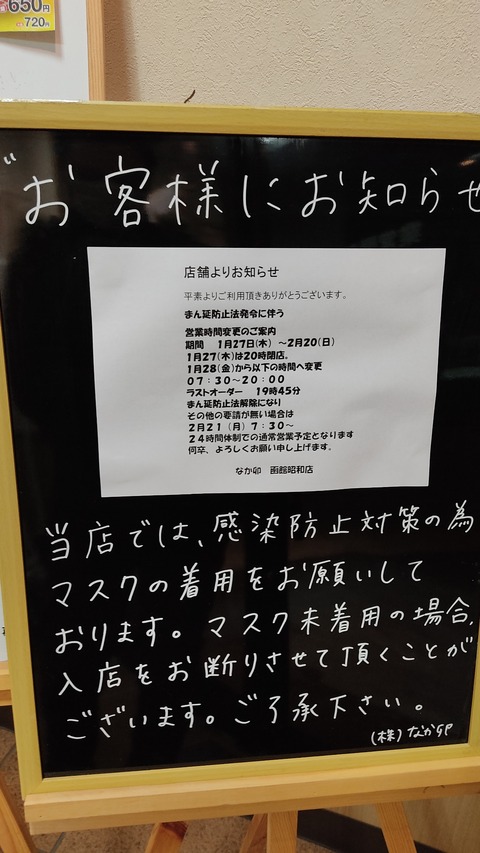 650円
720円
お客様にお知らせ
店舗よりお知らせ
平素よりご利用頂きありがとうございます。
まん延防止法発令に伴う
営業時間変更のご案内
期間 1月27日(木) ～2月20(日)
1月27(木)は20時閉店。
1月28(金)から以下の時間へ変更
07：30～20：00
ラストオーダー 19時45分
まん延防止法解除になり
その他の要請が無い場合は
2月21（月）7：30～
24時間体制での通常営業予定となります
何卒、よろしくお願い申し上げます。
なか卯 函館昭和店
当店では、感染防止対策の為
マスクの着用をお願いして
おります。マスク未着用の場合、
入店をお断りさせて頂くことが
ございます。ご了承下さい。
(株) なか卯